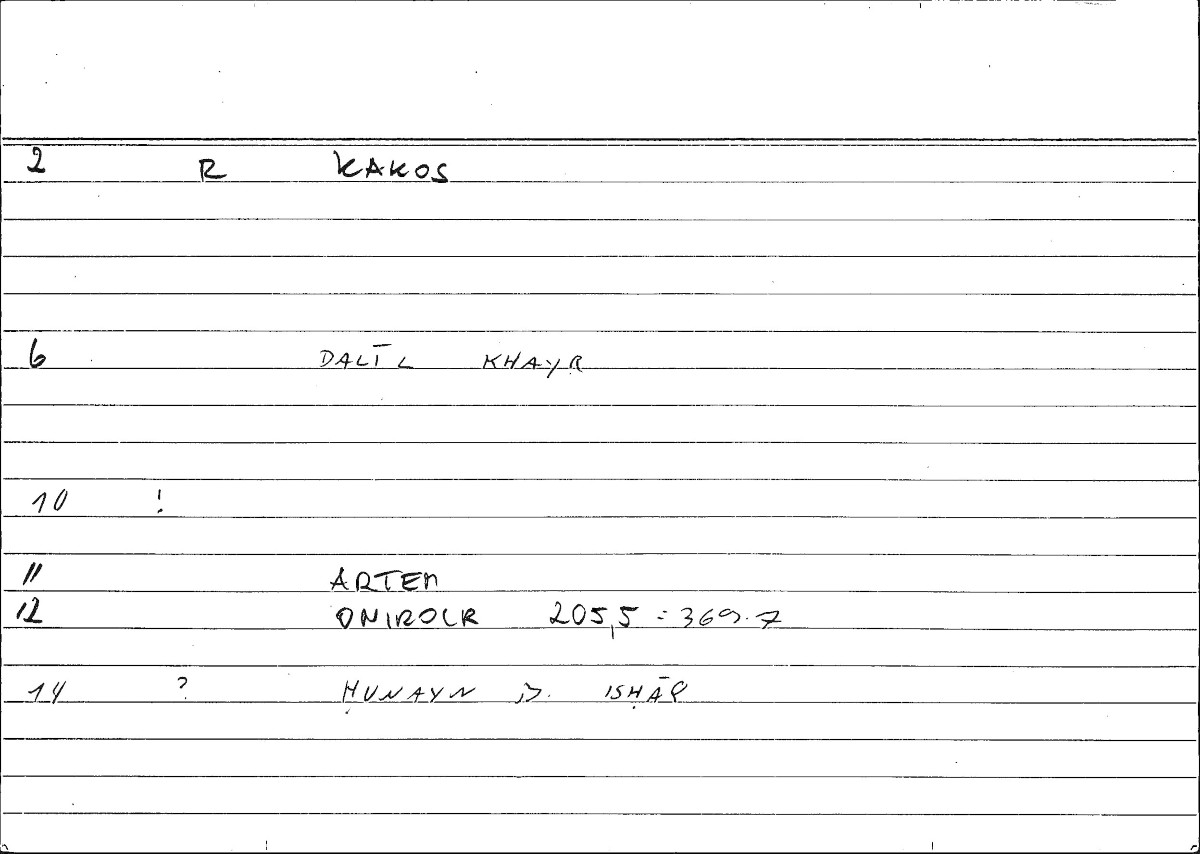 2 R KAKOS
6 DALĪL KHAYR
10 !
11 ARTEM
12 ONIROCR 205,5 = 369.7
14 ? ḤUNAYN B. ISḤĀQ